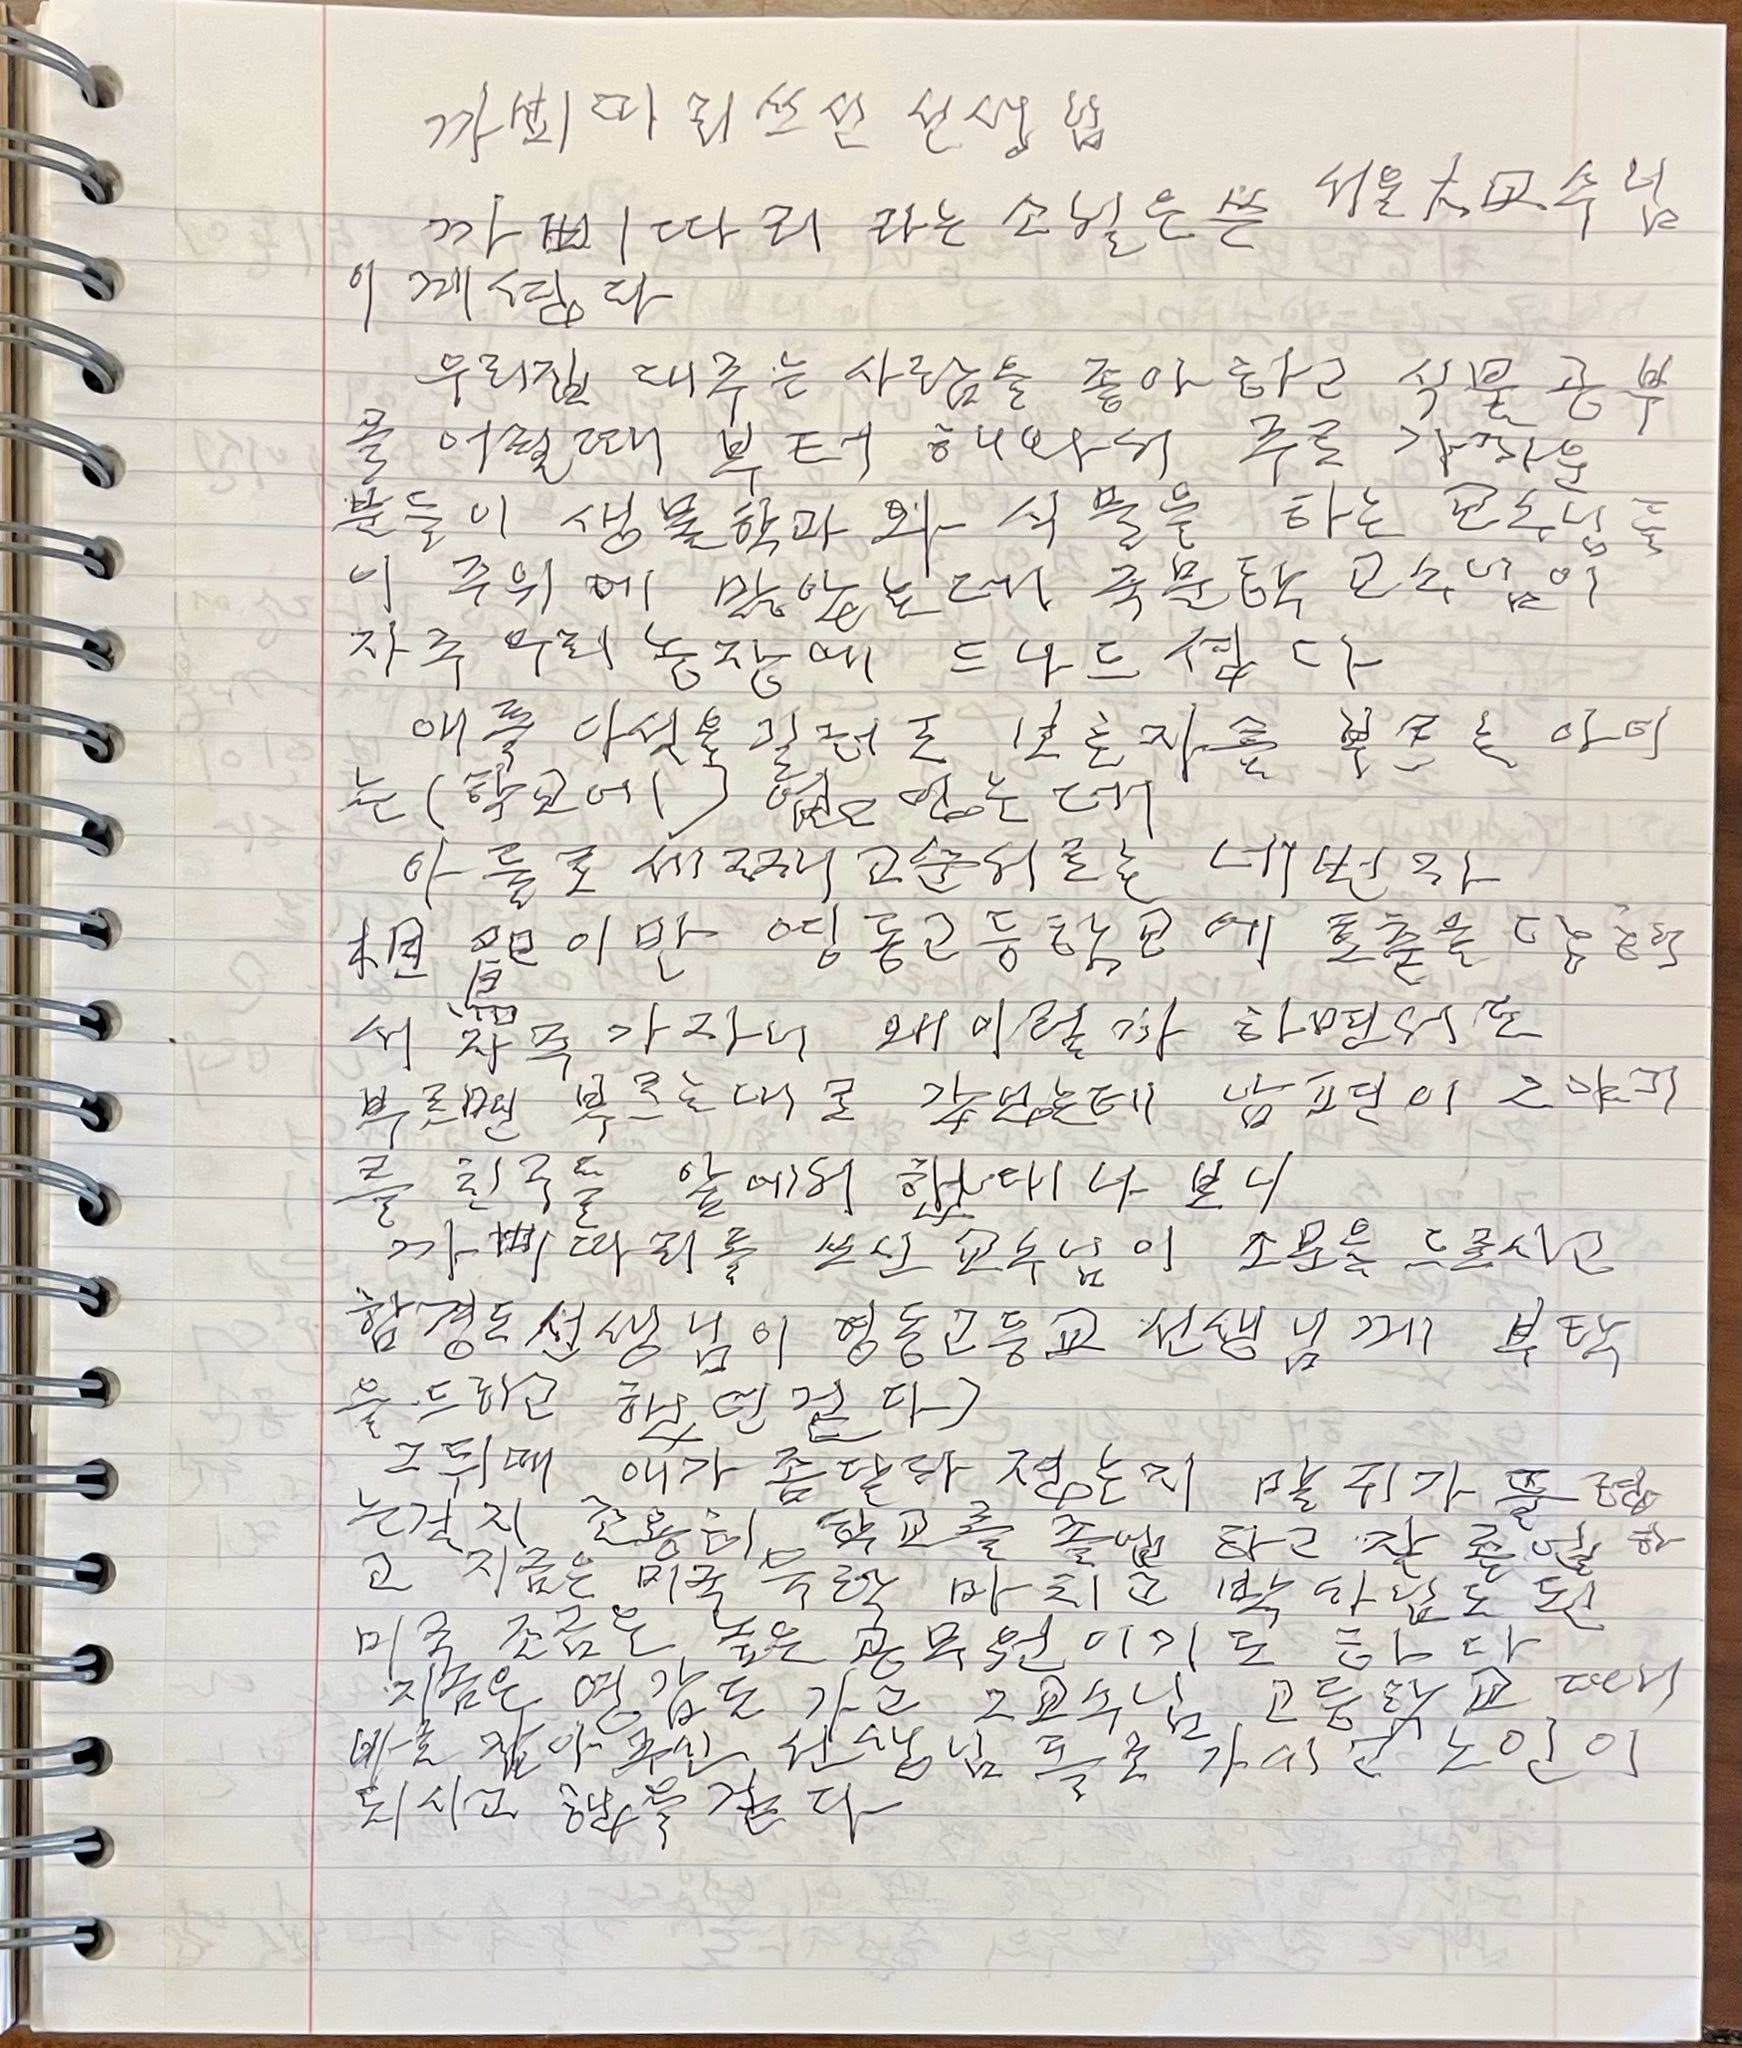 까삐따리 쓰신 선생님
까삐따리 라는 소설은 쓴 서울大 교수님
이 계셨다
우리집 대주는 사람을 좋아하고 식물공부
를 어릴때 부터 해와서 주로 가까운
분들이 생물학과 와 식물을 하는 교수님들
이 주위에 많았는데 국문학 교수님이
자주 우리 농장에 드나드셨다
애들 다섯을 길러도 보호자를 부르는 아이
는 (학교에) 없었는데
아들로 세째 순서로는 네번째
이만 영동고등학교에 호출을 당해
서 가자니 왜이럴까 하면서도
부르면 부르는대로 갔었는데 남편이 그 이야기
를 친구들 앞에서 했대나 보니
까삐따리를 쓰신 교수님이 소문을 드르시고
함경도 선생님이 영동고등교 선생님께 부탁
을 드리고 했던걸다)
그뒤에 애가 좀 달라졌는지 말귀가 뜰렸
는걸지 조용히 학교를 졸업 하고 잘 풀렸
고 지금은 미국 유학 마치고 박사님도 된
미국 조금은 높은 공무원이기도 하다
지금은 영감도 가고 그교수님 고등학교 때
바로 잡아 주신 선생님들도 가시고 노인이
되시고 했을 걸다